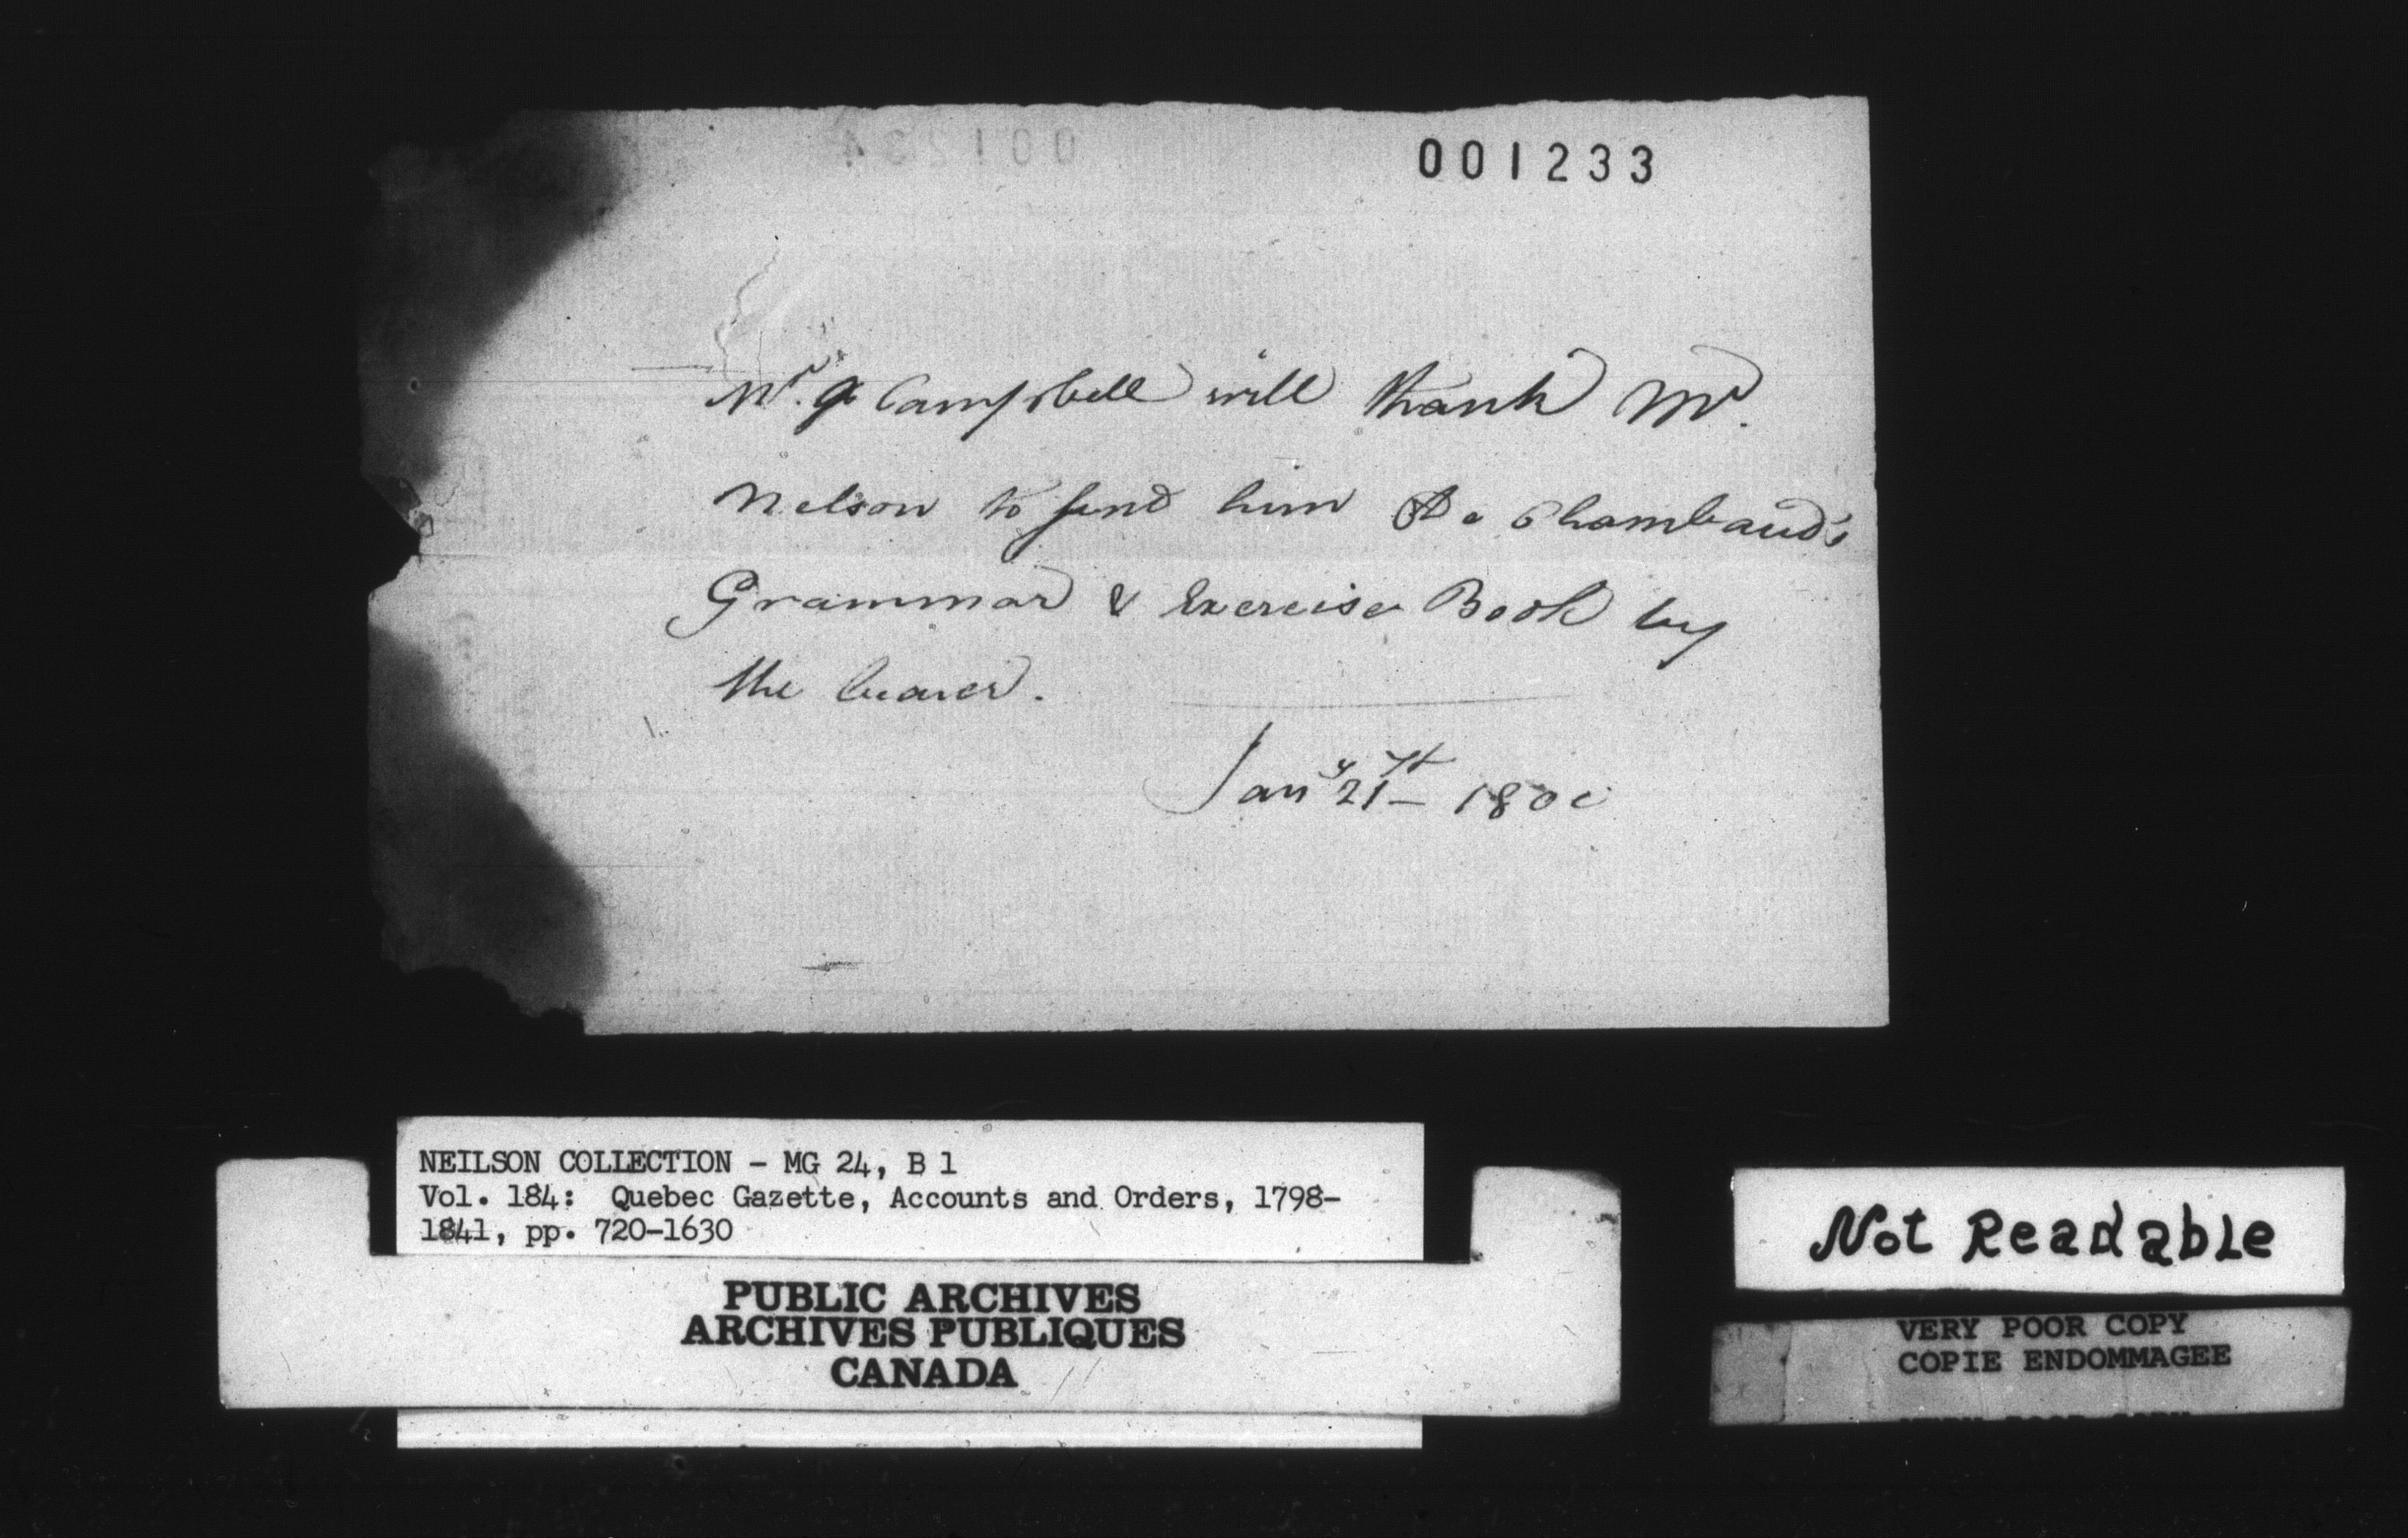 001233
Mr. A Campbell will thank Mr.
Nelson to send him a Chambaud's
Grammar & Exercise Book by
the bearer.
Jany 21st 1800
NEILSON COLLECTION - MG 24, B 1
Vol. 184: Quebec Gazette, Accounts and Orders, 1798-
1841, pp. 720-1630
PUBLIC ARCHIVES
ARCHIVES PUBLIQUES
CANADA
Not Readable
VERY POOR COPY
COPIE ENDOMMAGEE